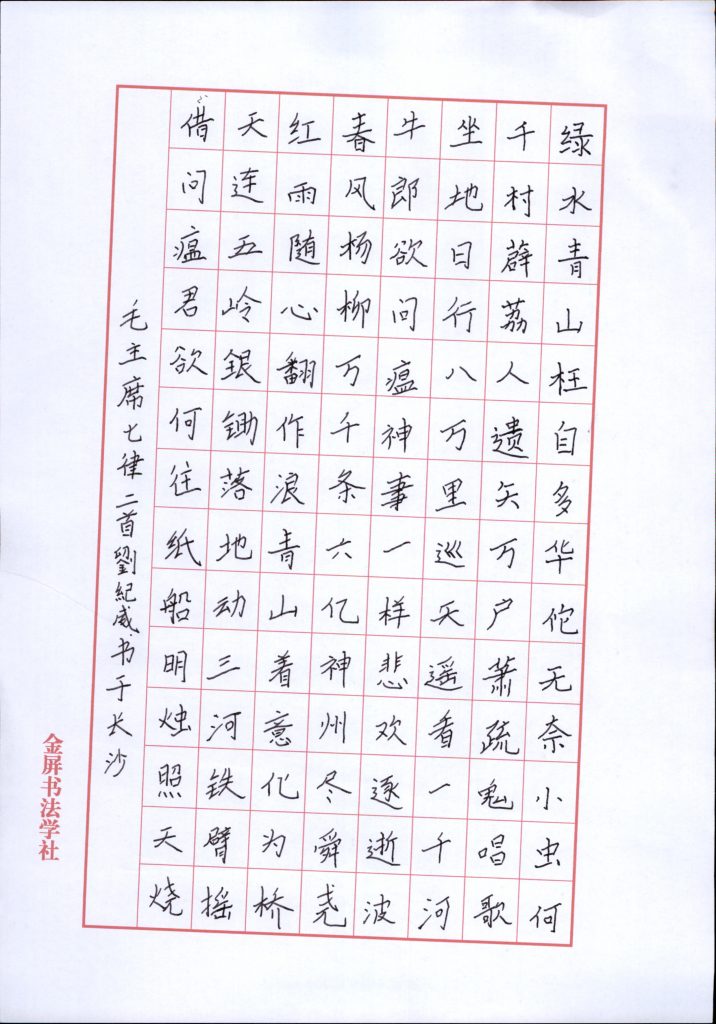 绿水青山枉自多华佗无奈小虫何
千村薜荔人遗矢万户萧疏鬼唱歌
坐地日行八万里巡天遥看一千河
牛郎欲问瘟神事一样悲欢逐逝波
春风杨柳万千条六亿神州尽舜尧
红雨随心翻作浪青山着意化为桥
天连五岭銀锄落地动三河铁臂摇
借问瘟君欲何往纸船明烛照天烧
毛主席七律二首劉紀威书于长沙
金屏书法学社